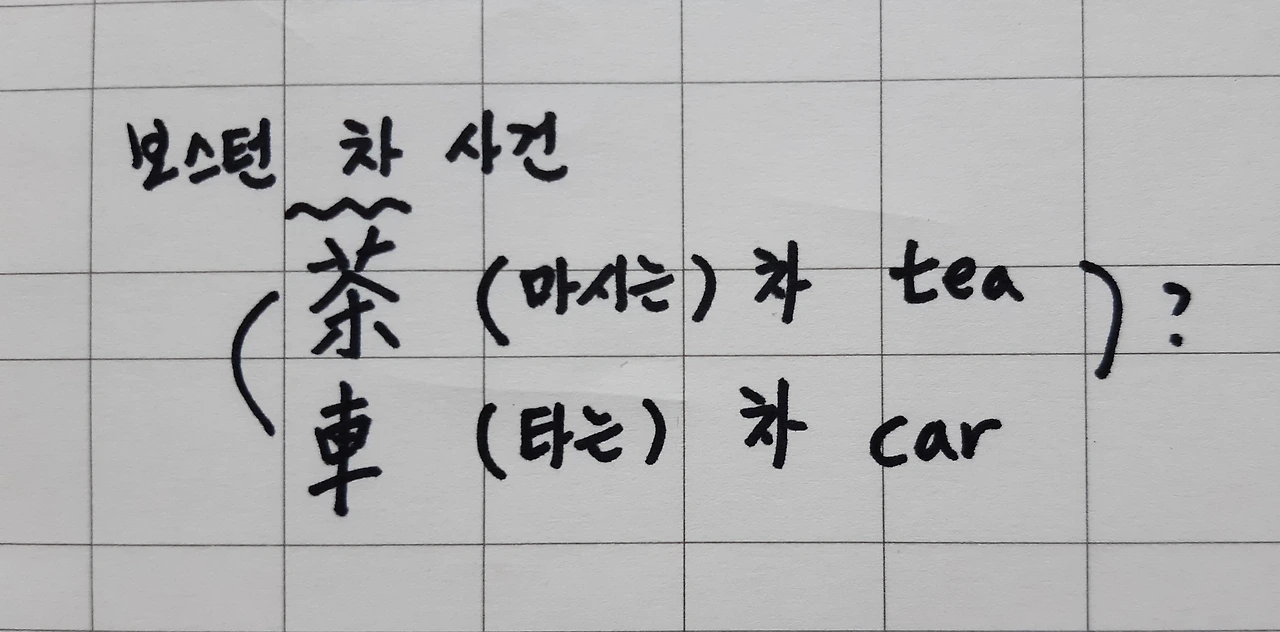 보스턴 차 사건
(茶 (마시는) 차 tea)?
車 (타는) 차 car